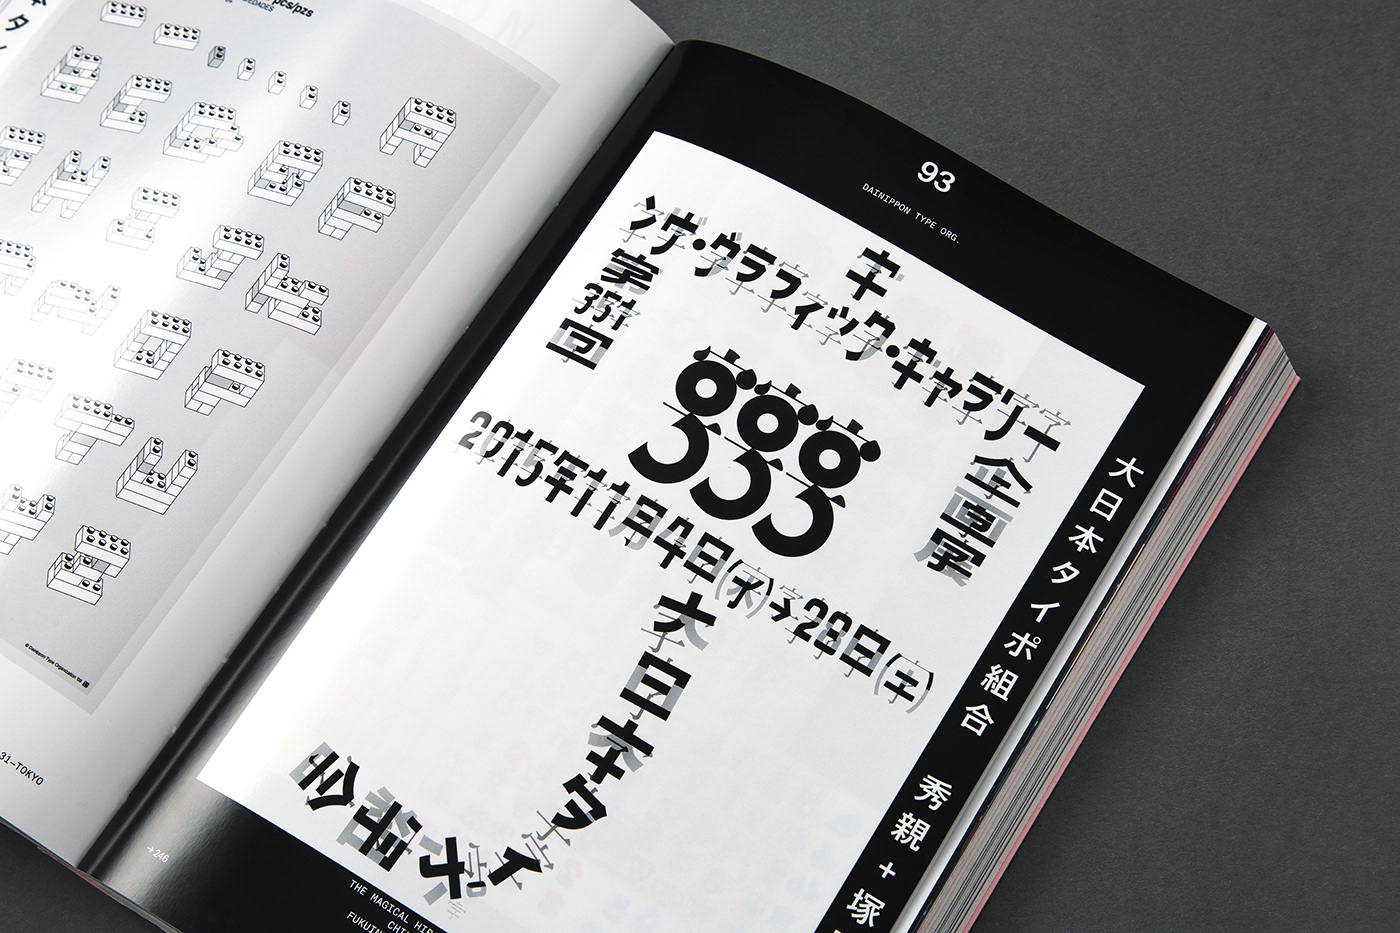 pcs/pzs
© Dainippon Type Organization
31–TOKYO
93
DAINIPPON TYPE ORG.
字
ギンザ・グラフィック・ギャラリー
第
351
回
企
画
展
ggg
2015年11月4日(水)→28日(土)
大日本タイポ組合
→246
THE MAGICAL
FUKUIN
大日本タイポ組合 秀親 + 塚